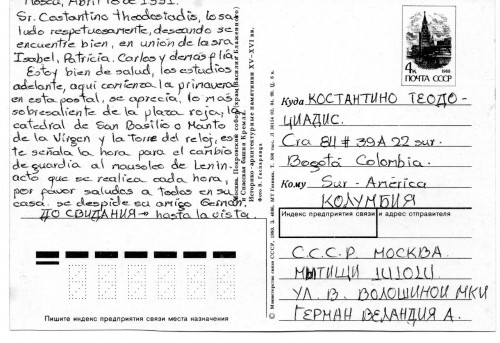 Moscú, Abril 18 de 1991.
Sr. Costantino theodostadis, lo sa
ludo respetuosamente, deseando se
encuentre bien, en unión de la sra
Isabel, Patricia, Carlos y demas flia
Estoy bien de salud, los estudios
adelante, aqui comienza la primavera
en esta postal, se aprecia, lo mas
sobresaliente de la plaza roja, la
catedral de San Basilio o Manto
de la Virgen y la Torre del reloj, es
te señala la hora para el cambio
de guardia al mausoleo de Lenin.
acto que se realiza cada hora,
por favor saludos a todos en su
casa. se despide su amigo German.
ДО СВИДАНИЯ → hasta la vista.
Москва. Покровский собор (храм Василия Блаженного)
и Спасская башня Кремля.
Историко-архитектурные памятники XV–XVI вв.
Фото В.
© Министерство связи СССР, 1990.
4к
1988
ПОЧТА СССР
Куда КОСТАНТИНО ТЕОДО-
ЦИАДИС.
Cra 84 # 39 A 22 sur.
Bogotá Colombia.
Кому Sur - América
КОЛУМБИЯ
Индекс предприятия связи и адрес отправителя
С.С.С.Р. МОСКВА.
МЫТИЩИ 141014
УЛ. В. ВОЛОШИНОЙ МКИ
ГЕРМАН ВЕЛАНДИЯ А.
Пишите индекс предприятия связи места назначения